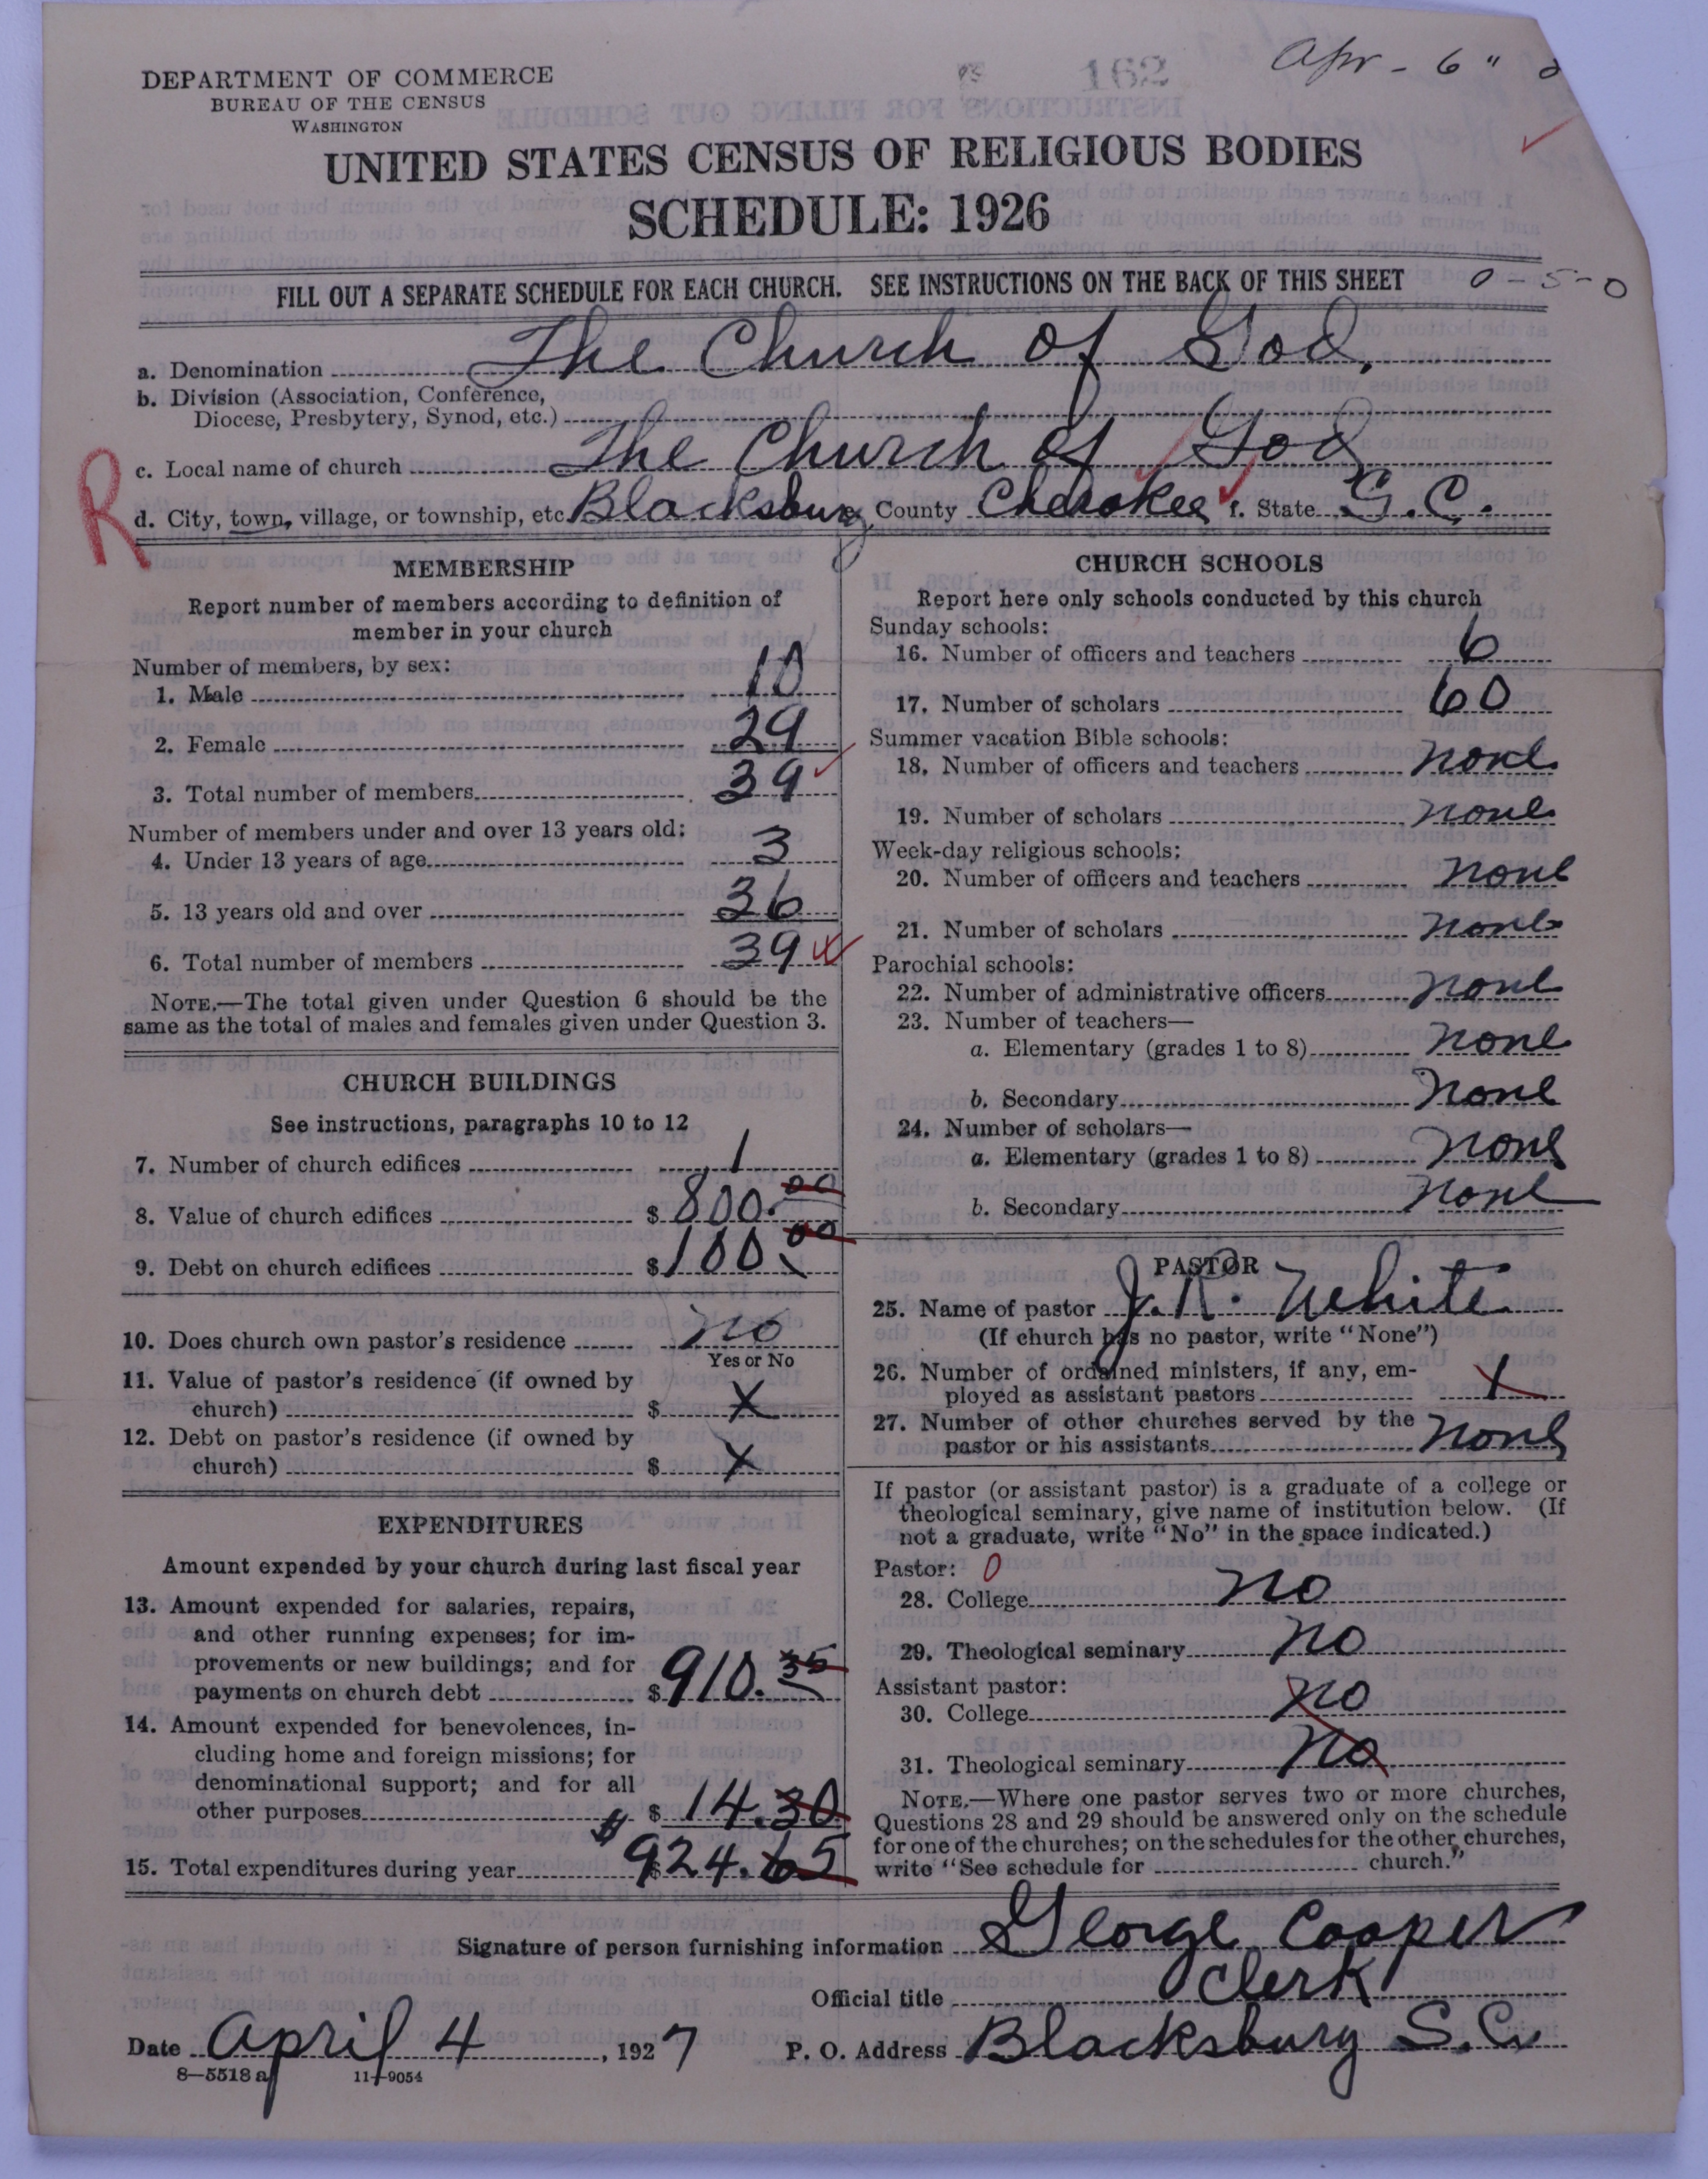 DEPARTMENT OF COMMERCE
BUREAU OF THE CENSUS
WASHINGTON
162
Apr - 6 "
UNITED STATES CENSUS OF RELIGIOUS BODIES
SCHEDULE: 1926
FILL OUT A SEPARATE SCHEDULE FOR EACH CHURCH. SEE INSTRUCTIONS ON THE BACK OF THIS SHEET 0-5-0
a. Denomination The Church of God,
b. Division (Association, Conference,
Diocese, Presbytery, Synod, etc.)
R
c. Local name of church The Church of God
d. City, town, village, or township, etc. Blacksburg e. County Cherokee f. State S.C.
MEMBERSHIP
Report number of members according to definition of
member in your church
Number of members, by sex:
1. Male 10
2. Female 29
3. Total number of members 39
Number of members under and over 13 years old:
4. Under 13 years of age 3
5. 13 years old and over 36
6. Total number of members 39
NOTE.—The total given under Question 6 should be the
same as the total of males and females given under Question 3.
CHURCH BUILDINGS
See instructions, paragraphs 10 to 12
7. Number of church edifices 1
8. Value of church edifices $800.00
9. Debt on church edifices $100.00
10. Does church own pastor's residence no
Yes or No
11. Value of pastor's residence (if owned by
church) $ X
12. Debt on pastor's residence (if owned by
church) $ X
EXPENDITURES
Amount expended by your church during last fiscal year
13. Amount expended for salaries, repairs,
and other running expenses; for im-
provements or new buildings; and for
payments on church debt $910.35
14. Amount expended for benevolences, in-
cluding home and foreign missions; for
denominational support; and for all
other purposes $14.30
15. Total expenditures during year $924.65
CHURCH SCHOOLS
Report here only schools conducted by this church
Sunday schools:
16. Number of officers and teachers 6
17. Number of scholars 60
Summer vacation Bible schools:
18. Number of officers and teachers none
19. Number of scholars none
Week-day religious schools:
20. Number of officers and teachers none
21. Number of scholars none
Parochial schools:
22. Number of administrative officers none
23. Number of teachers—
a. Elementary (grades 1 to 8) none
b. Secondary none
24. Number of scholars—
a. Elementary (grades 1 to 8) none
b. Secondary none
PASTOR
25. Name of pastor J. R. White
(If church has no pastor, write "None")
26. Number of ordained ministers, if any, em-
ployed as assistant pastors 1
27. Number of other churches served by the
pastor or his assistants none
If pastor (or assistant pastor) is a graduate of a college or
theological seminary, give name of institution below. (If
not a graduate, write "No" in the space indicated.)
Pastor: 0
28. College no
29. Theological seminary no
Assistant pastor:
30. College no
31. Theological seminary no
NOTE.—Where one pastor serves two or more churches,
Questions 28 and 29 should be answered only on the schedule
for one of the churches; on the schedules for the other churches,
write "See schedule for church."
Signature of person furnishing information George Cooper
Official title Clerk
Date April 4, 1927 P. O. Address Blacksburg S.C.
8—5518 a 11—9054